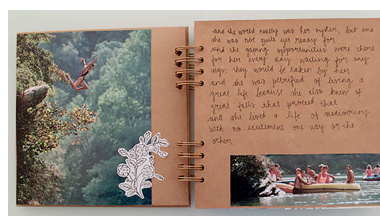 and the world really was her oyster, but one
she was not quite yet ready for
and the gaping opportunities were there
for her every day waiting for any
sign they would be taken by her
and she was petrified of living a
great life because she also knew of
great falls that proceed that
and she lived a life of mediocrity
with no excitement one way or the
other